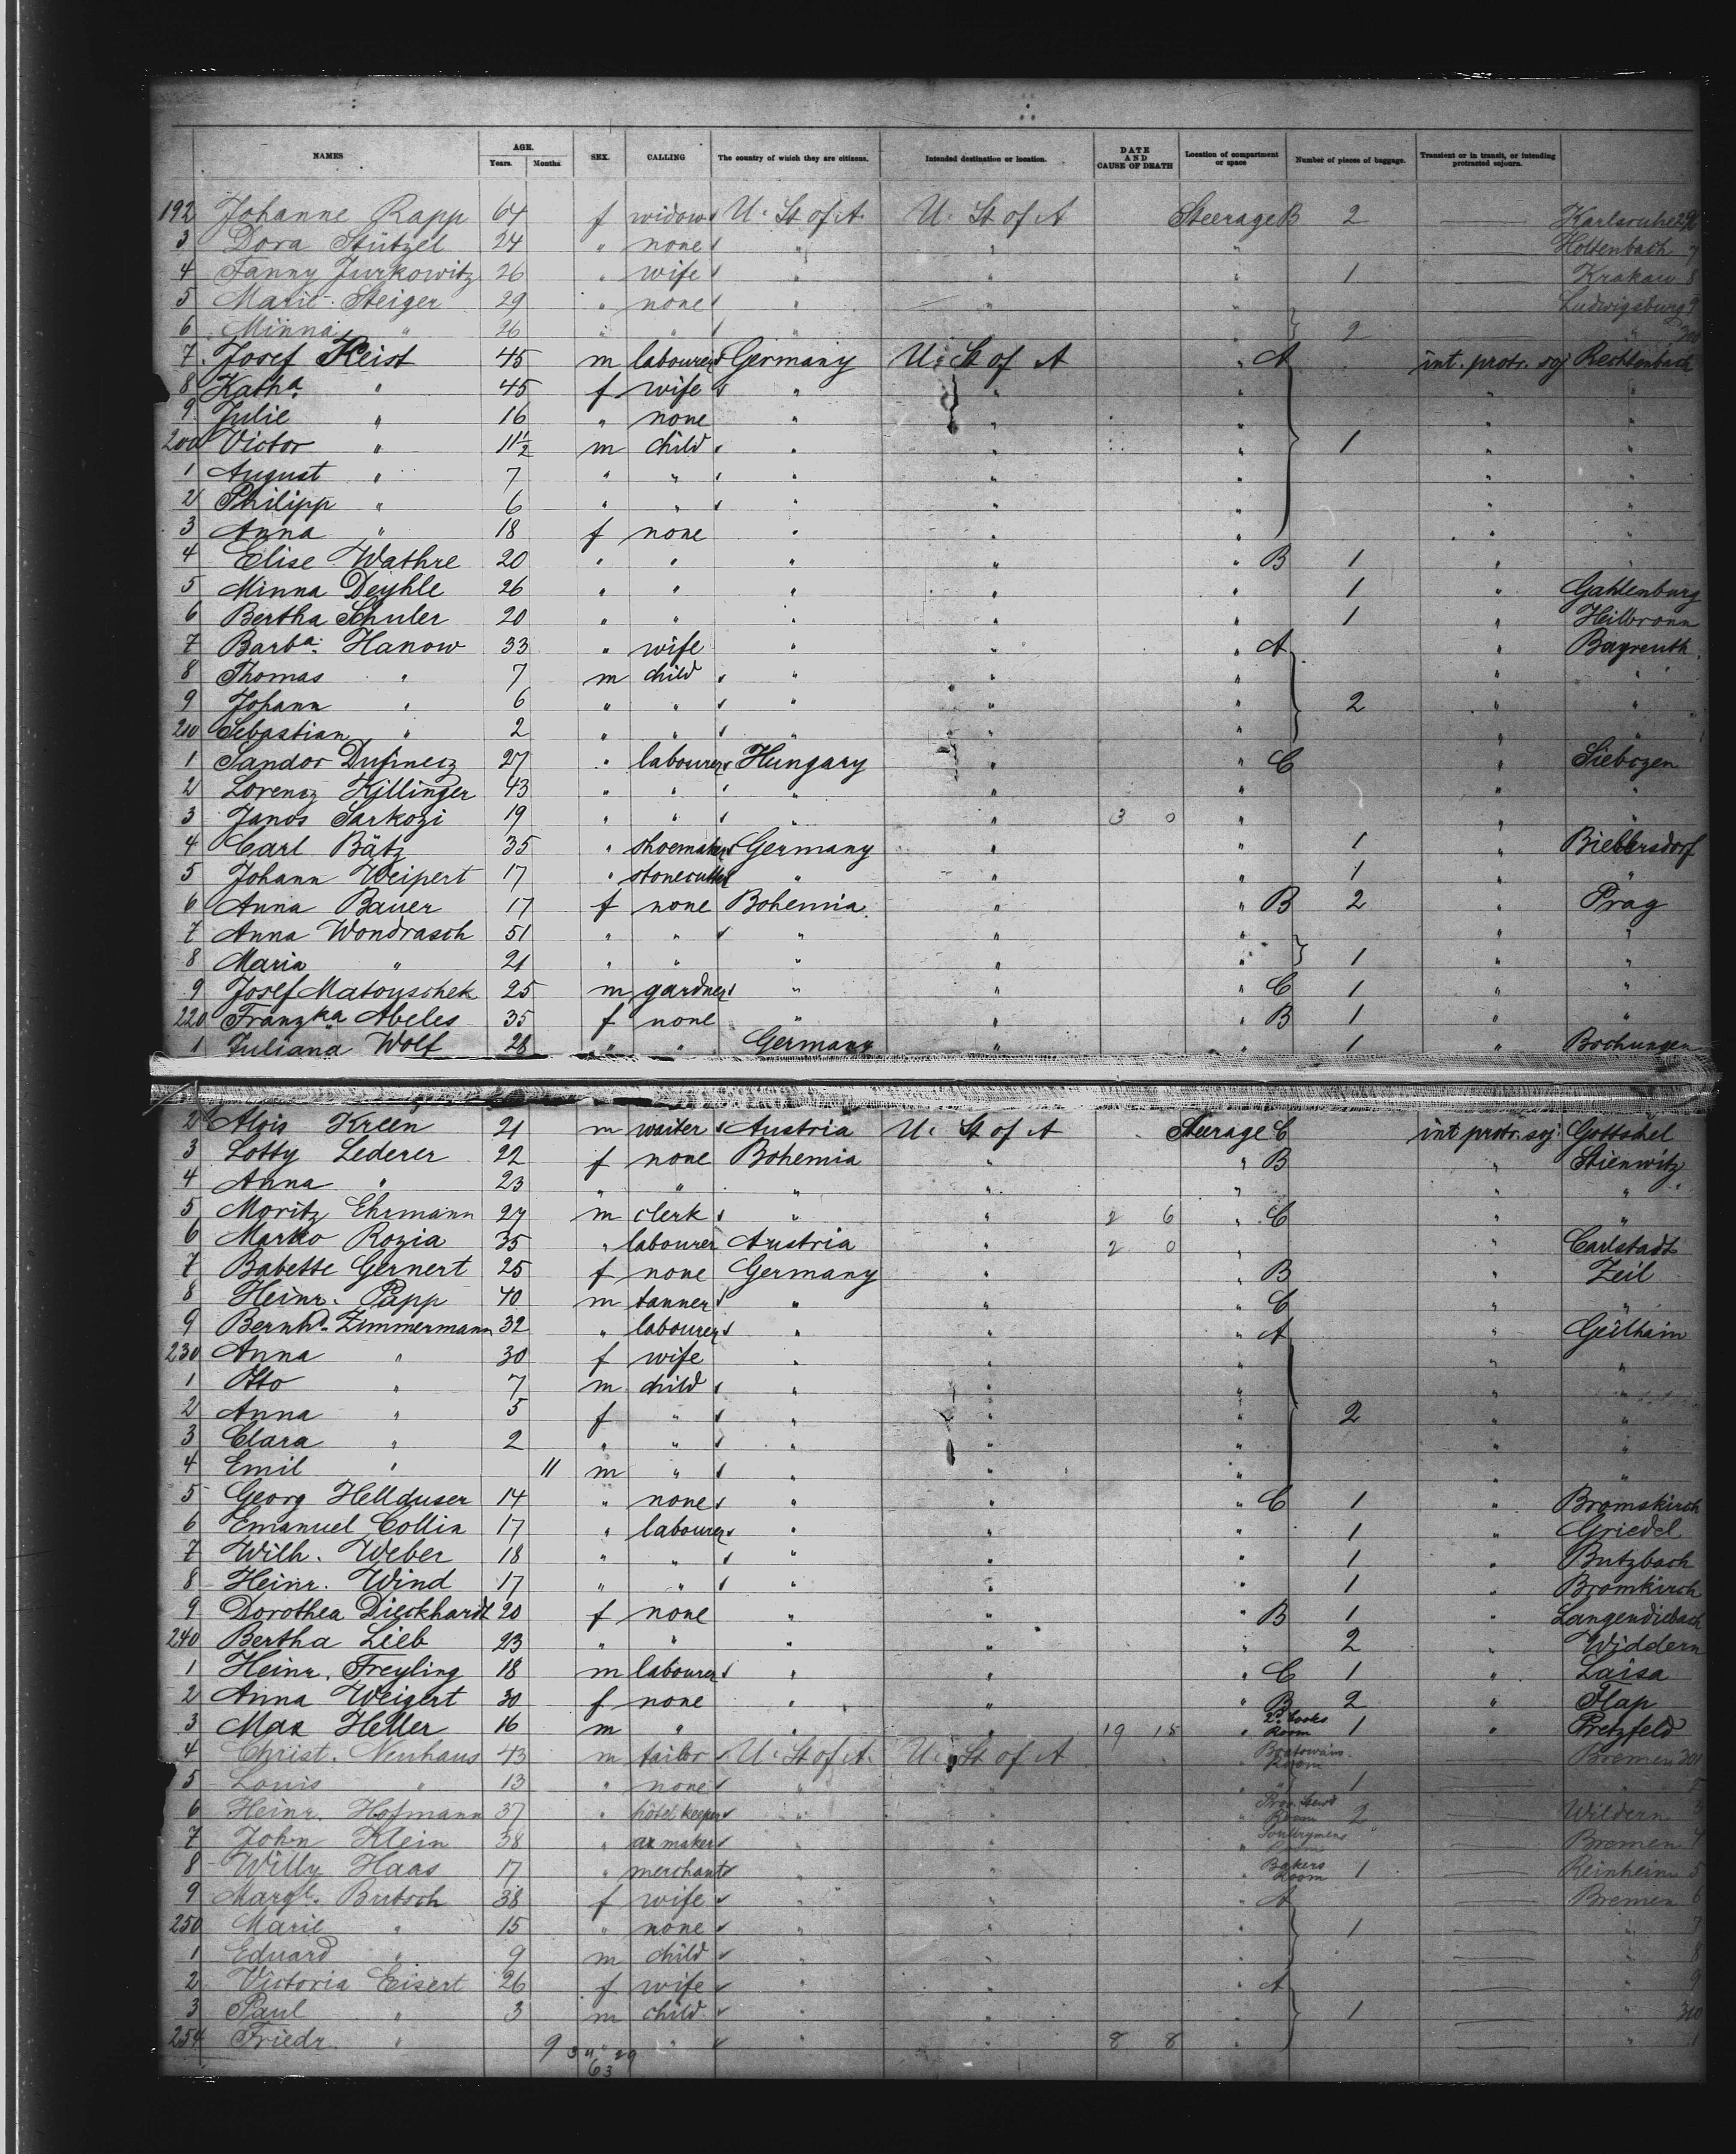 NAMES AGE. Years. Months. SEX. CALLING The country of which they are citizens. Intended destination or location. DATE AND CAUSE OF DEATH Location of compartment or space Number of pieces of baggage. Transient or in transit, or intending protracted sojourn.
192 Johanne Rapp 64 f widow U. St of A. U. St of A Steerage B 2 — Karlsruhe
3 Dora Stützel 24 " none " " " — Holtenbach 7
4 Fanny Jurkowitz 26 " wife " " " 1 — Krakau 8
5 Marie Steiger 29 " none " " " — Ludwigsburg 9
6 Minna " 26 " " " " " 2 — " 300
7 Josef Reist 45 m labourer Germany U. St of A " A int. protr. soj Rechtenbach
8 Katha. " 45 f wife " " " " "
9 Julie " 16 " none " " " " "
200 Victor " 11½ m child " " " 1 " "
1 August " 7 " " " " " " "
2 Philipp " 6 " " " " " " "
3 Anna " 18 f none " " " " "
4 Elise Wathre 20 " " " " " B 1 "
5 Minna Deyhle 26 " " " " " 1 " Gahlenburg
6 Bertha Schuler 20 " " " " " 1 " Heilbronn
7 Barba. Hanow 33 " wife " " " A " Bayreuth
8 Thomas " 7 m child " " " " "
9 Johann " 6 " " " " " 2 " "
210 Sebastian " 2 " " " " " " "
1 Sandor 27 " labourer Hungary " " C " Siebozen
2 Lorencz Killinger 43 " " " " " " "
3 Janos Sarkozi 19 " " " " 3 0 " " "
4 Carl Bätz 35 " shoemaker Germany " " 1 " Biebersdorf
5 Johann Weipert 17 " stonecutter " " " 1 " "
6 Anna Bauer 17 f none Bohemia " " B 2 " Prag
7 Anna Wondrasch 51 " " " " " " "
8 Maria " 21 " " " " " 1 " "
9 Josef Matouschek 25 m gardner " " " C 1 " "
220 Franzka Abeles 35 f none " " " B 1 " "
1 Juliana Wolf 28 " " Germany " " 1 " Bochungen
2 Alois Kreen 21 m waiter Austria U. St of A Steerage C int protr. soj. Gottschel
3 Lotty Lederer 22 f none Bohemia " " B " Stienwitz
4 Anna " 23 " " " " " " "
5 Moritz Ehrmann 27 m clerk " " 2 6 " C " "
6 Marko Rozia 35 " labourer Austria " 2 0 " " Carlstadt
7 Babette Gernert 25 f none Germany " " B " Zeil
8 Heinr. Papp 40 m tanner " " " C " "
9 Bernhd. Zimmermann 32 " labourer " " " A " Geilhain
230 Anna " 30 f wife " " " " "
1 Otto " 7 m child " " " " "
2 Anna " 5 f " " " " 2 " "
3 Clara " 2 " " " " " " "
4 Emil " 11 m " " " " " "
5 Georg Hellduser 14 " none " " " C 1 " Bromskirch
6 Emanuel Collin 17 " labourer " " " 1 " Griedel
7 Wilh. Weber 18 " " " " " 1 " Butzbach
8 Heinr. Wind 17 " " " " " 1 " Bromkirch
9 Dorothea Dieckhardt 20 f none " " " B 1 " Langendiebach
240 Bertha Lieb 23 " " " " " 2 " Widdern
1 Heinr. Freyling 18 m labourer " " " C 1 " Laisa
2 Anna Weigert 30 f none " " " B 2 " Flap
3 Max Heller 16 m " " " 19 15 " 2d. Cooks Room 1 " Pretzfeld
4 Christ. Neuhaus 43 m tailor U. St of A. U. St of A Room — Bremen 301
5 Louis " 13 " none " " " 1 —
6 Heinr. Hofmann 37 " hotel keeper " " Room 2 — Wildern 3
7 John Klein 38 " " " " — Bremen 4
8 Willy Haas 17 " merchant " " " Bakers Room 1 — Reinheim 5
9 Margt. Butsch 38 f wife " " " A — Bremen 6
250 Marie " 15 " none " " " 1 — " 7
1 Eduard " 9 m child " " " — " 8
2 Victoria Eisert 26 f wife " " " A — " 9
3 Paul " 3 m child " " " 1 — " 310
254 Friedr. " 9 " " " 8 8 " " 1
63